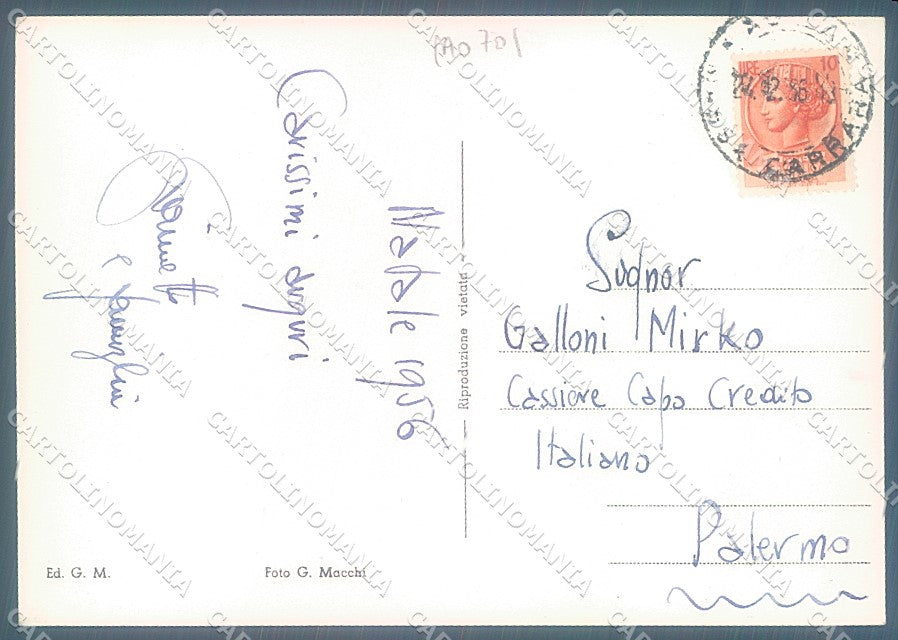 Natale 1956
Carissimi auguri
e
Signor
Galloni Mirko
Cassiere Capo Credito
Italiano
Palermo
Riproduzione vietata
Ed. G. M.
Foto G. Macchi
LIRE 10
24.12.56
CARRARA
CARTOLINOMANIA